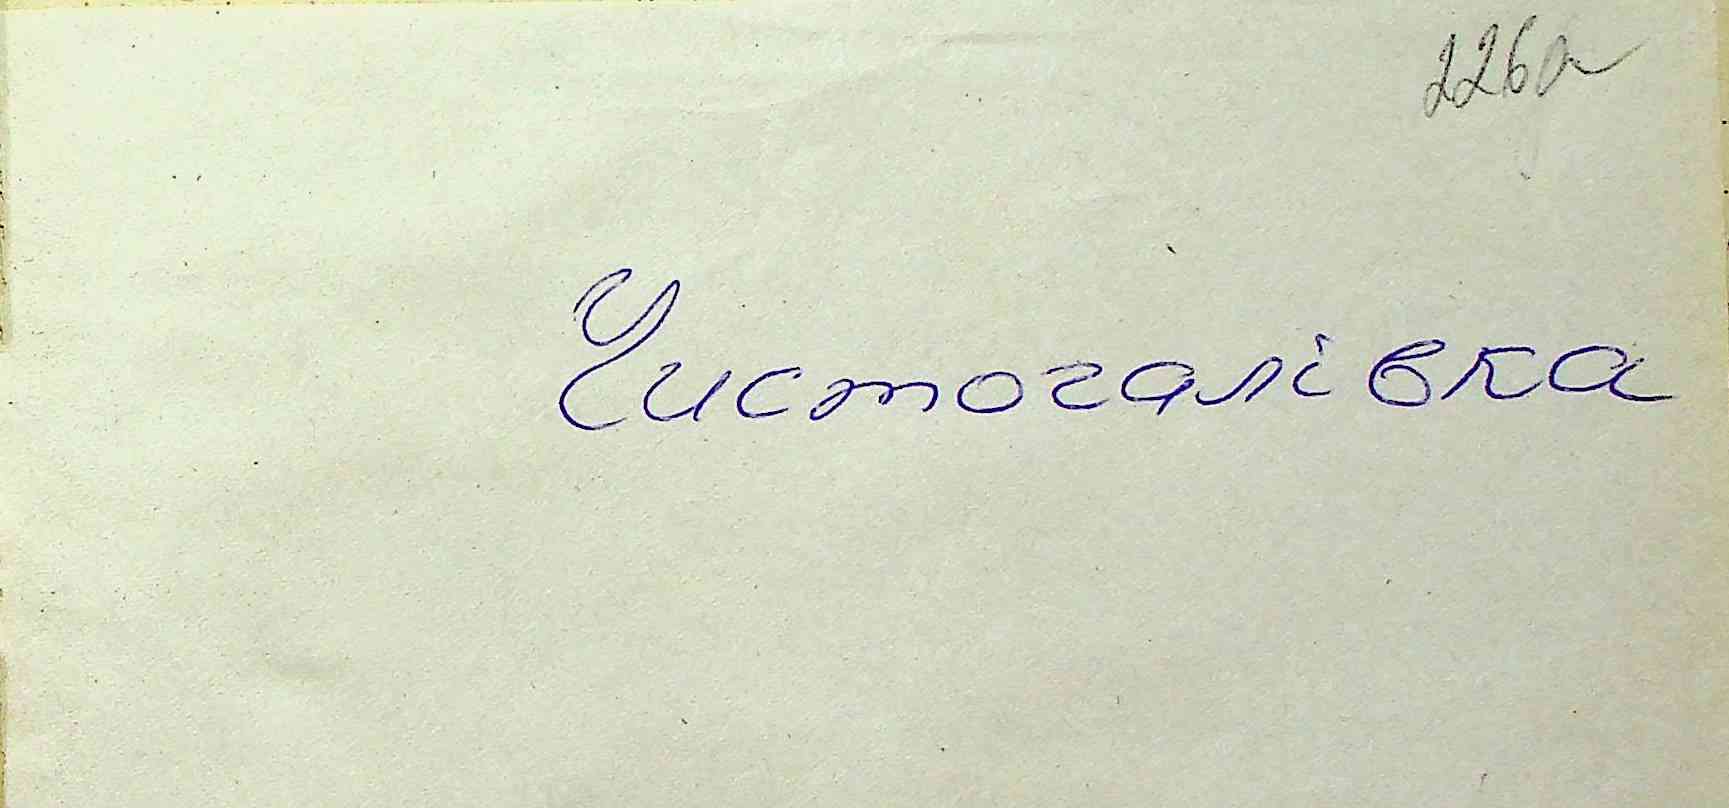 226а
Чистогалівка